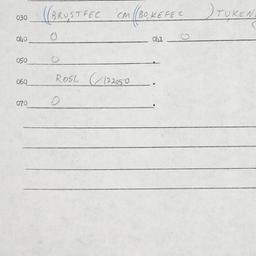 030 ((BRUSTFEC CM ((BOKEFEC ) TUKEN
040 0 042 0
050 0 .
060 ROSL (/122050 .
070 0 .